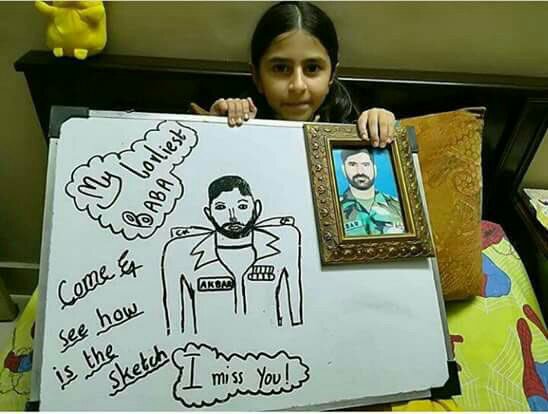 My Lovliest
BABA
Come &
see how
is the
sketch
AKBAR
I miss You!